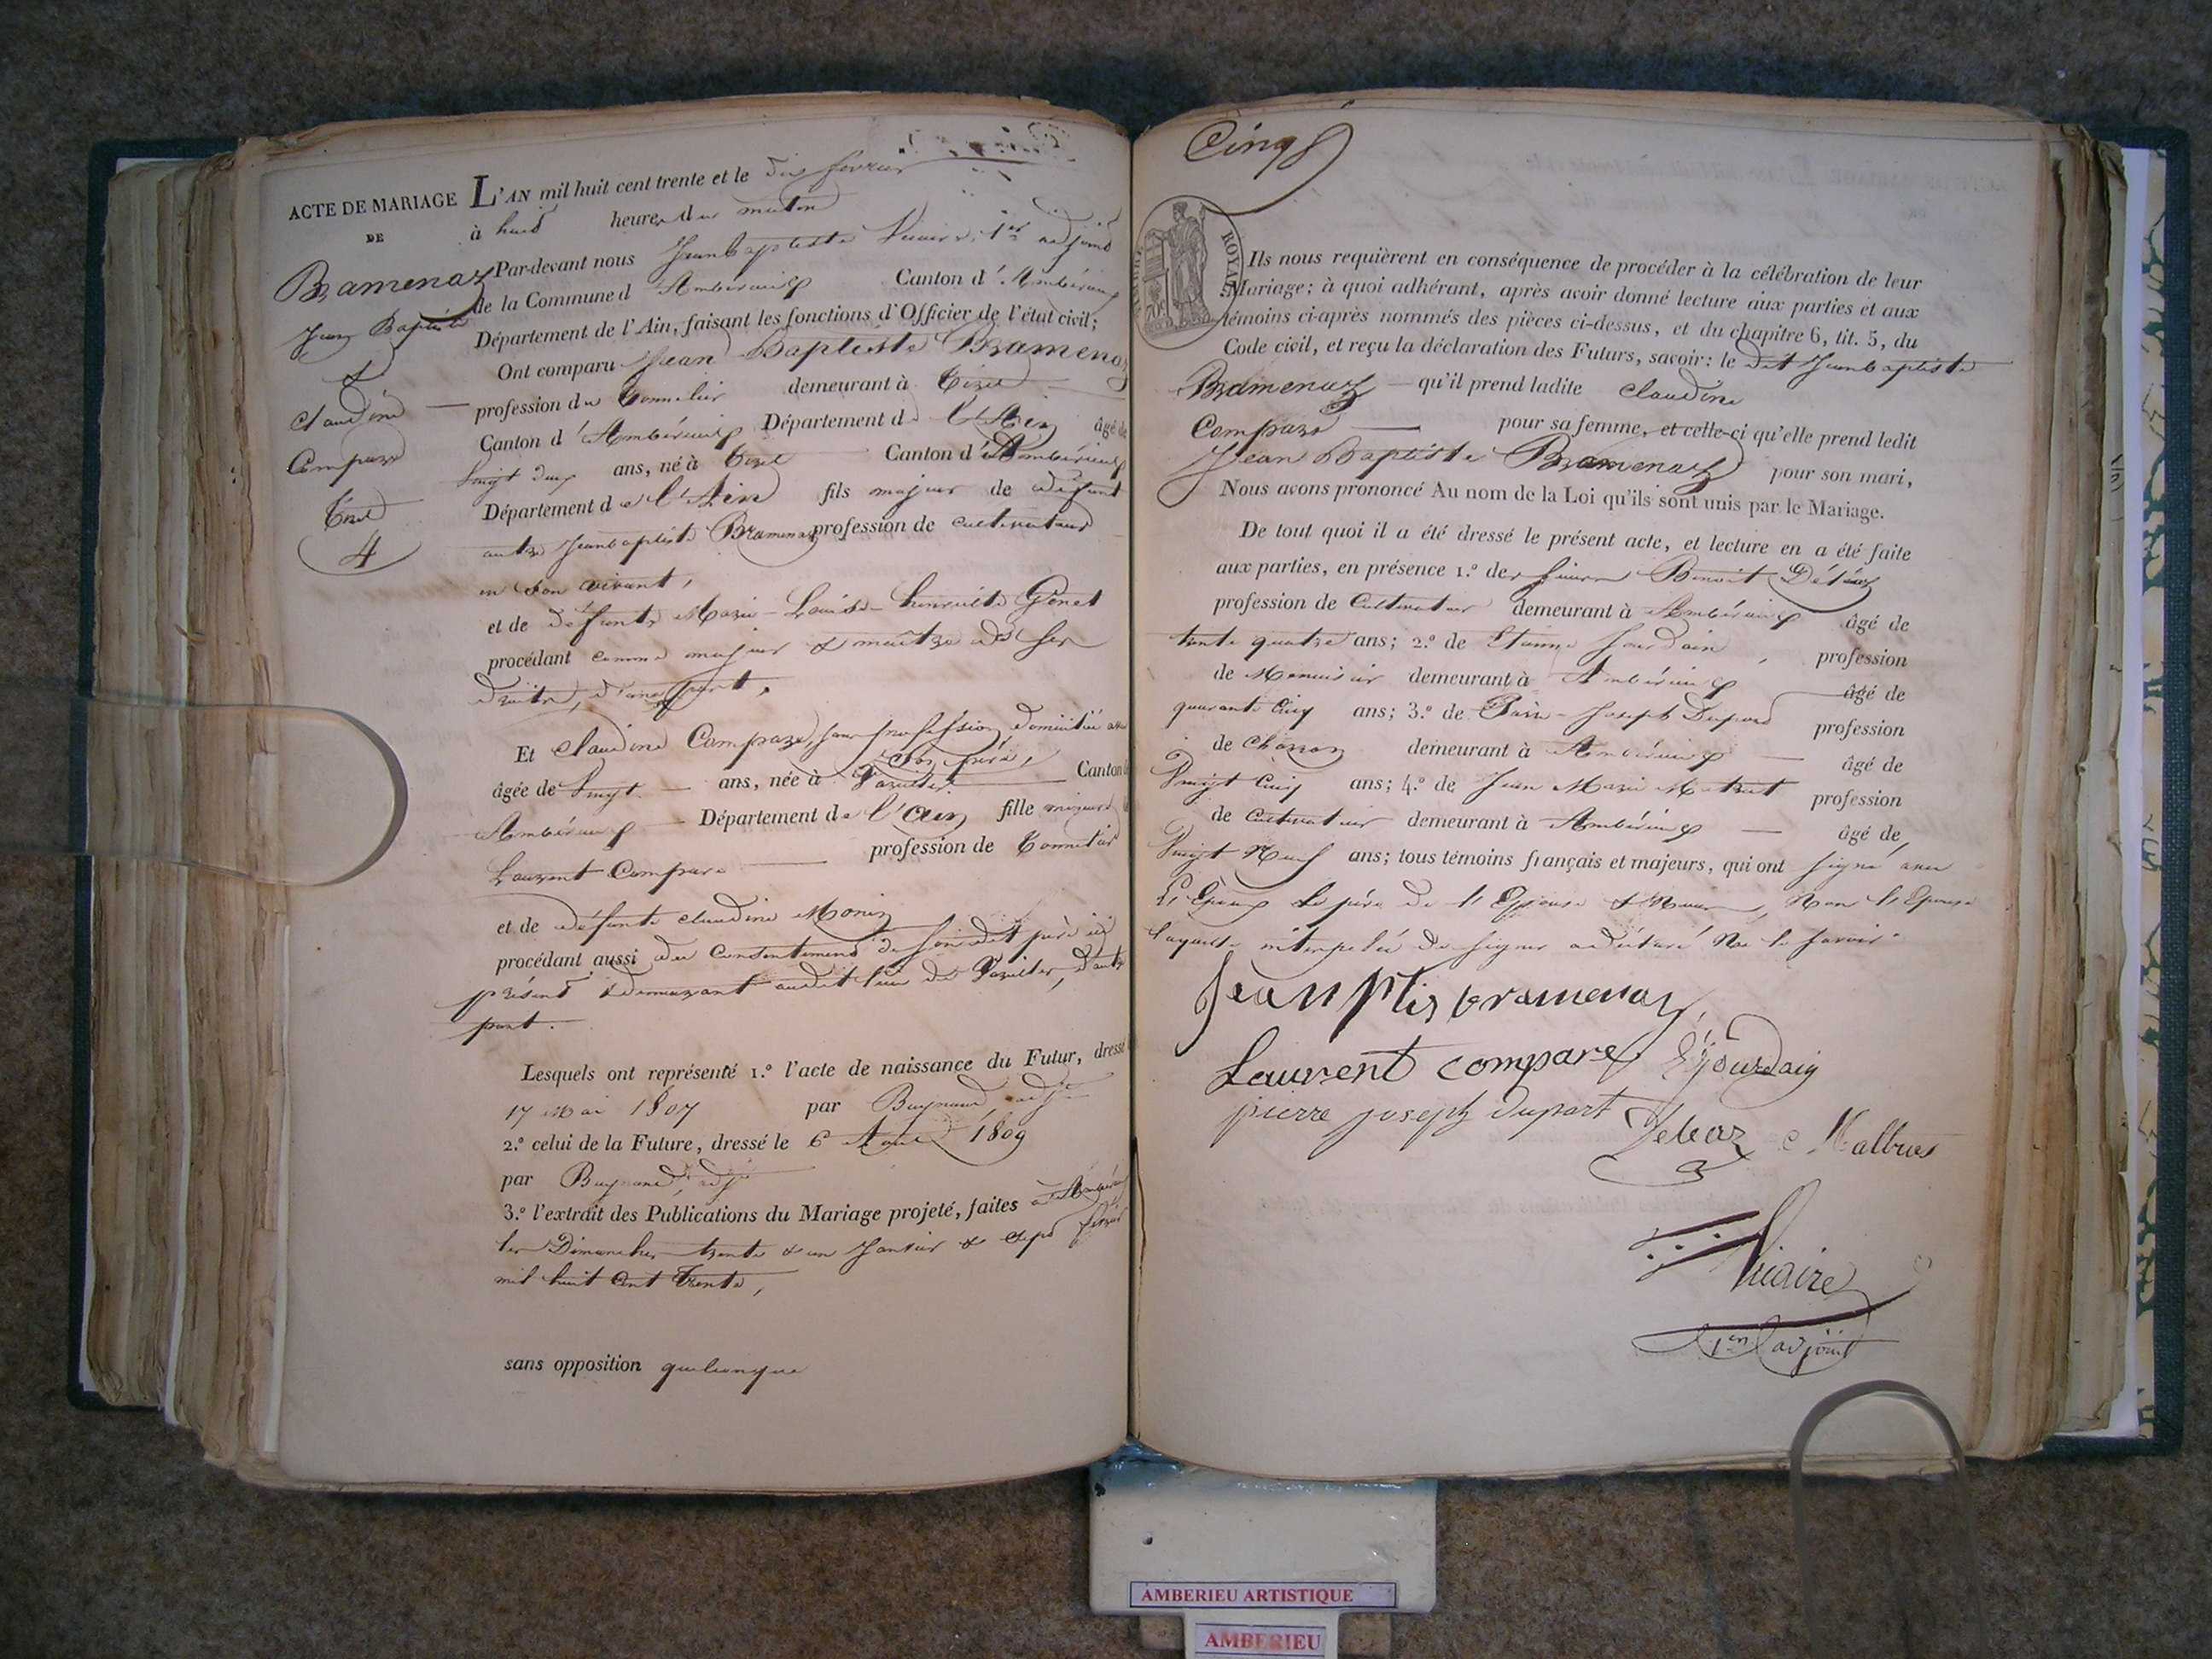 ACTE DE MARIAGE
DE
Bramenaz
Jean Baptiste
et
Claudine
Compare
Tiret
4
L'AN mil huit cent trente et le dix fevrier
à huit heures du matin
Par-devant nous Jeanbaptiste Vicaire, 1er adjoint
de la Commune d'Ambérieux Canton d'Ambérieux
Département de l'Ain, faisant les fonctions d'Officier de l'état civil;
Ont comparu Jean Baptiste Bramenaz
profession de Tonnelier demeurant à Tiret
Canton d'Ambérieux Département de l'Ain âgé de
Vingt deux ans, né à Tiret Canton d'Ambérieux
Département de l'Ain fils majeur de défunt
autre Jeanbaptiste Bramenaz profession de Cultivateur
en son vivant,
et de défunte Marie-Louise-henriette Genet
procédant comme majeur & maitre de ses
droits, d'une part,
Et Claudine Compare, sans profession, domiciliée avec
son père,
âgée de Vingt ans, née à Vareilles Canton d
Ambérieux Département de l'Ain fille mineure
Laurent Compare profession de Tonnelier
et de défunte Claudine Monin
procédant aussi du Consentement de son dit père ici
présent & demeurant audit lieu de Vareilles, d'autre
part.
Lesquels ont représenté 1.º l'acte de naissance du Futur, dressé
17 Mai 1807 par Buynand adjt
2.º celui de la Future, dressé le 6 Aout 1809
par Buynand, adjt
3.º l'extrait des Publications du Mariage projeté, faites à Ambérieux
les Dimanches trente & un Janvier & sept fevrier
mil huit Cent Trente,
sans opposition quelconque
Cinq
TIMBRE ROYAL
Ils nous requièrent en conséquence de procéder à la célébration de leur
Mariage; à quoi adhérant, après avoir donné lecture aux parties et aux
témoins ci-après nommés des pièces ci-dessus, et du chapitre 6, tit. 5, du
Code civil, et reçu la déclaration des Futurs, savoir: le dit Jeanbaptiste
Bramenaz qu'il prend ladite Claudine
Compare pour sa femme, et celle-ci qu'elle prend ledit
Jean Baptiste Bramenaz pour son mari,
Nous avons prononcé Au nom de la Loi qu'ils sont unis par le Mariage.
De tout quoi il a été dressé le présent acte, et lecture en a été faite
aux parties, en présence 1.º des sieurs Benoit Déléaz
profession de Cultivateur demeurant à Ambérieux âgé de
trente quatre ans; 2.º de Etienne Jourdain, profession
de Menuisier demeurant à Ambérieux âgé de
quarante Cinq ans; 3.º de Pierre-Joseph Dupard profession
de demeurant à Ambérieux âgé de
Vingt Cinq ans; 4.º de Jean Marie profession
de Cultivateur demeurant à Ambérieux âgé de
Vingt Neuf ans; tous témoins français et majeurs, qui ont signé avec
l'Epoux le père de l'Epouse & Nous, Non l'Epouse
laquelle interpelée de signer a déclaré Ne le savoir.
Jean ptis bramenaz
Laurent compare E Jourdain
pierre joseph dupart Deleaz
Vicaire
1er adjoint
AMBERIEU ARTISTIQUE
AMBERIEU